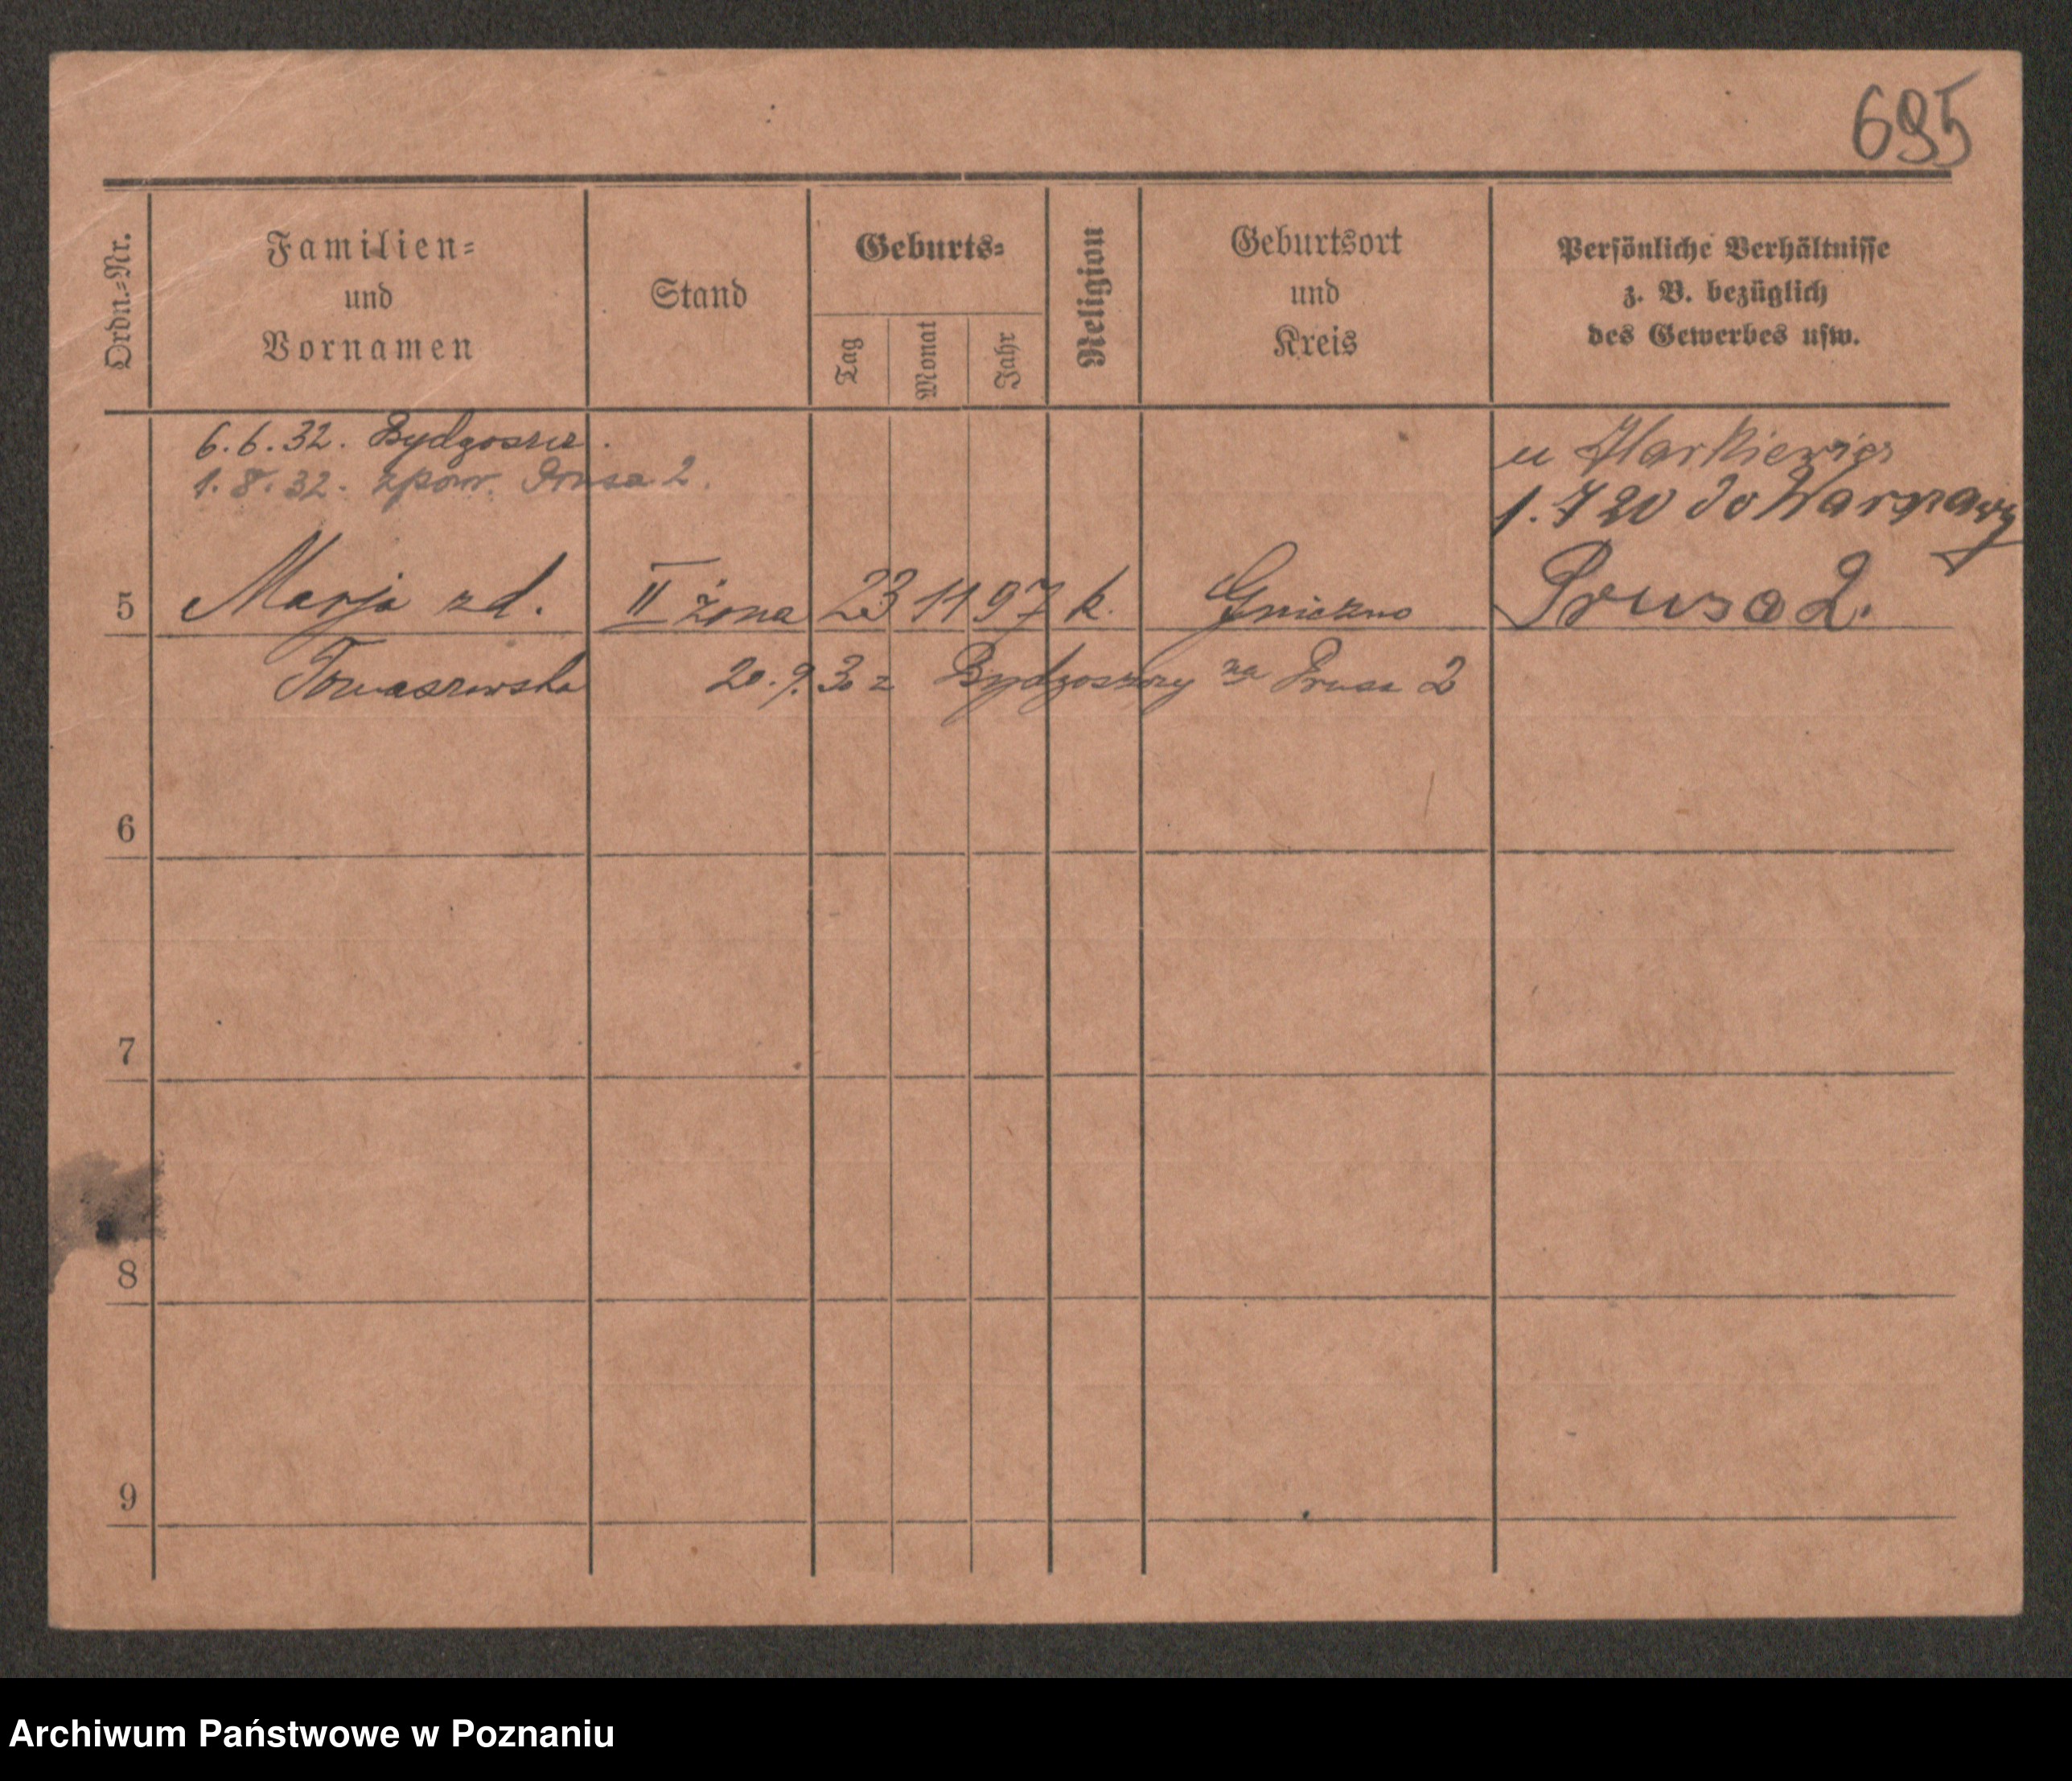 695
Ordn.-Nr.
Familien-
und
Vornamen
Stand
Geburts-
Tag
Monat
Jahr
Religion
Geburtsort
und
Kreis
Persönliche Verhältnisse
z. B. bezüglich
des Gewerbes usw.
6.6.32. Bydgoszcz.
1.8.32. zpow. Prusa 2.
u Markiewicz
1.7 20 do Warszawy
5 Marja zd. II żona 23 11 97 k. Gniezno Prusa 2.
Tomaszewska 20.9.30 z Bydgoszczy na Prusa 2
6
7
8
9
Archiwum Państwowe w Poznaniu